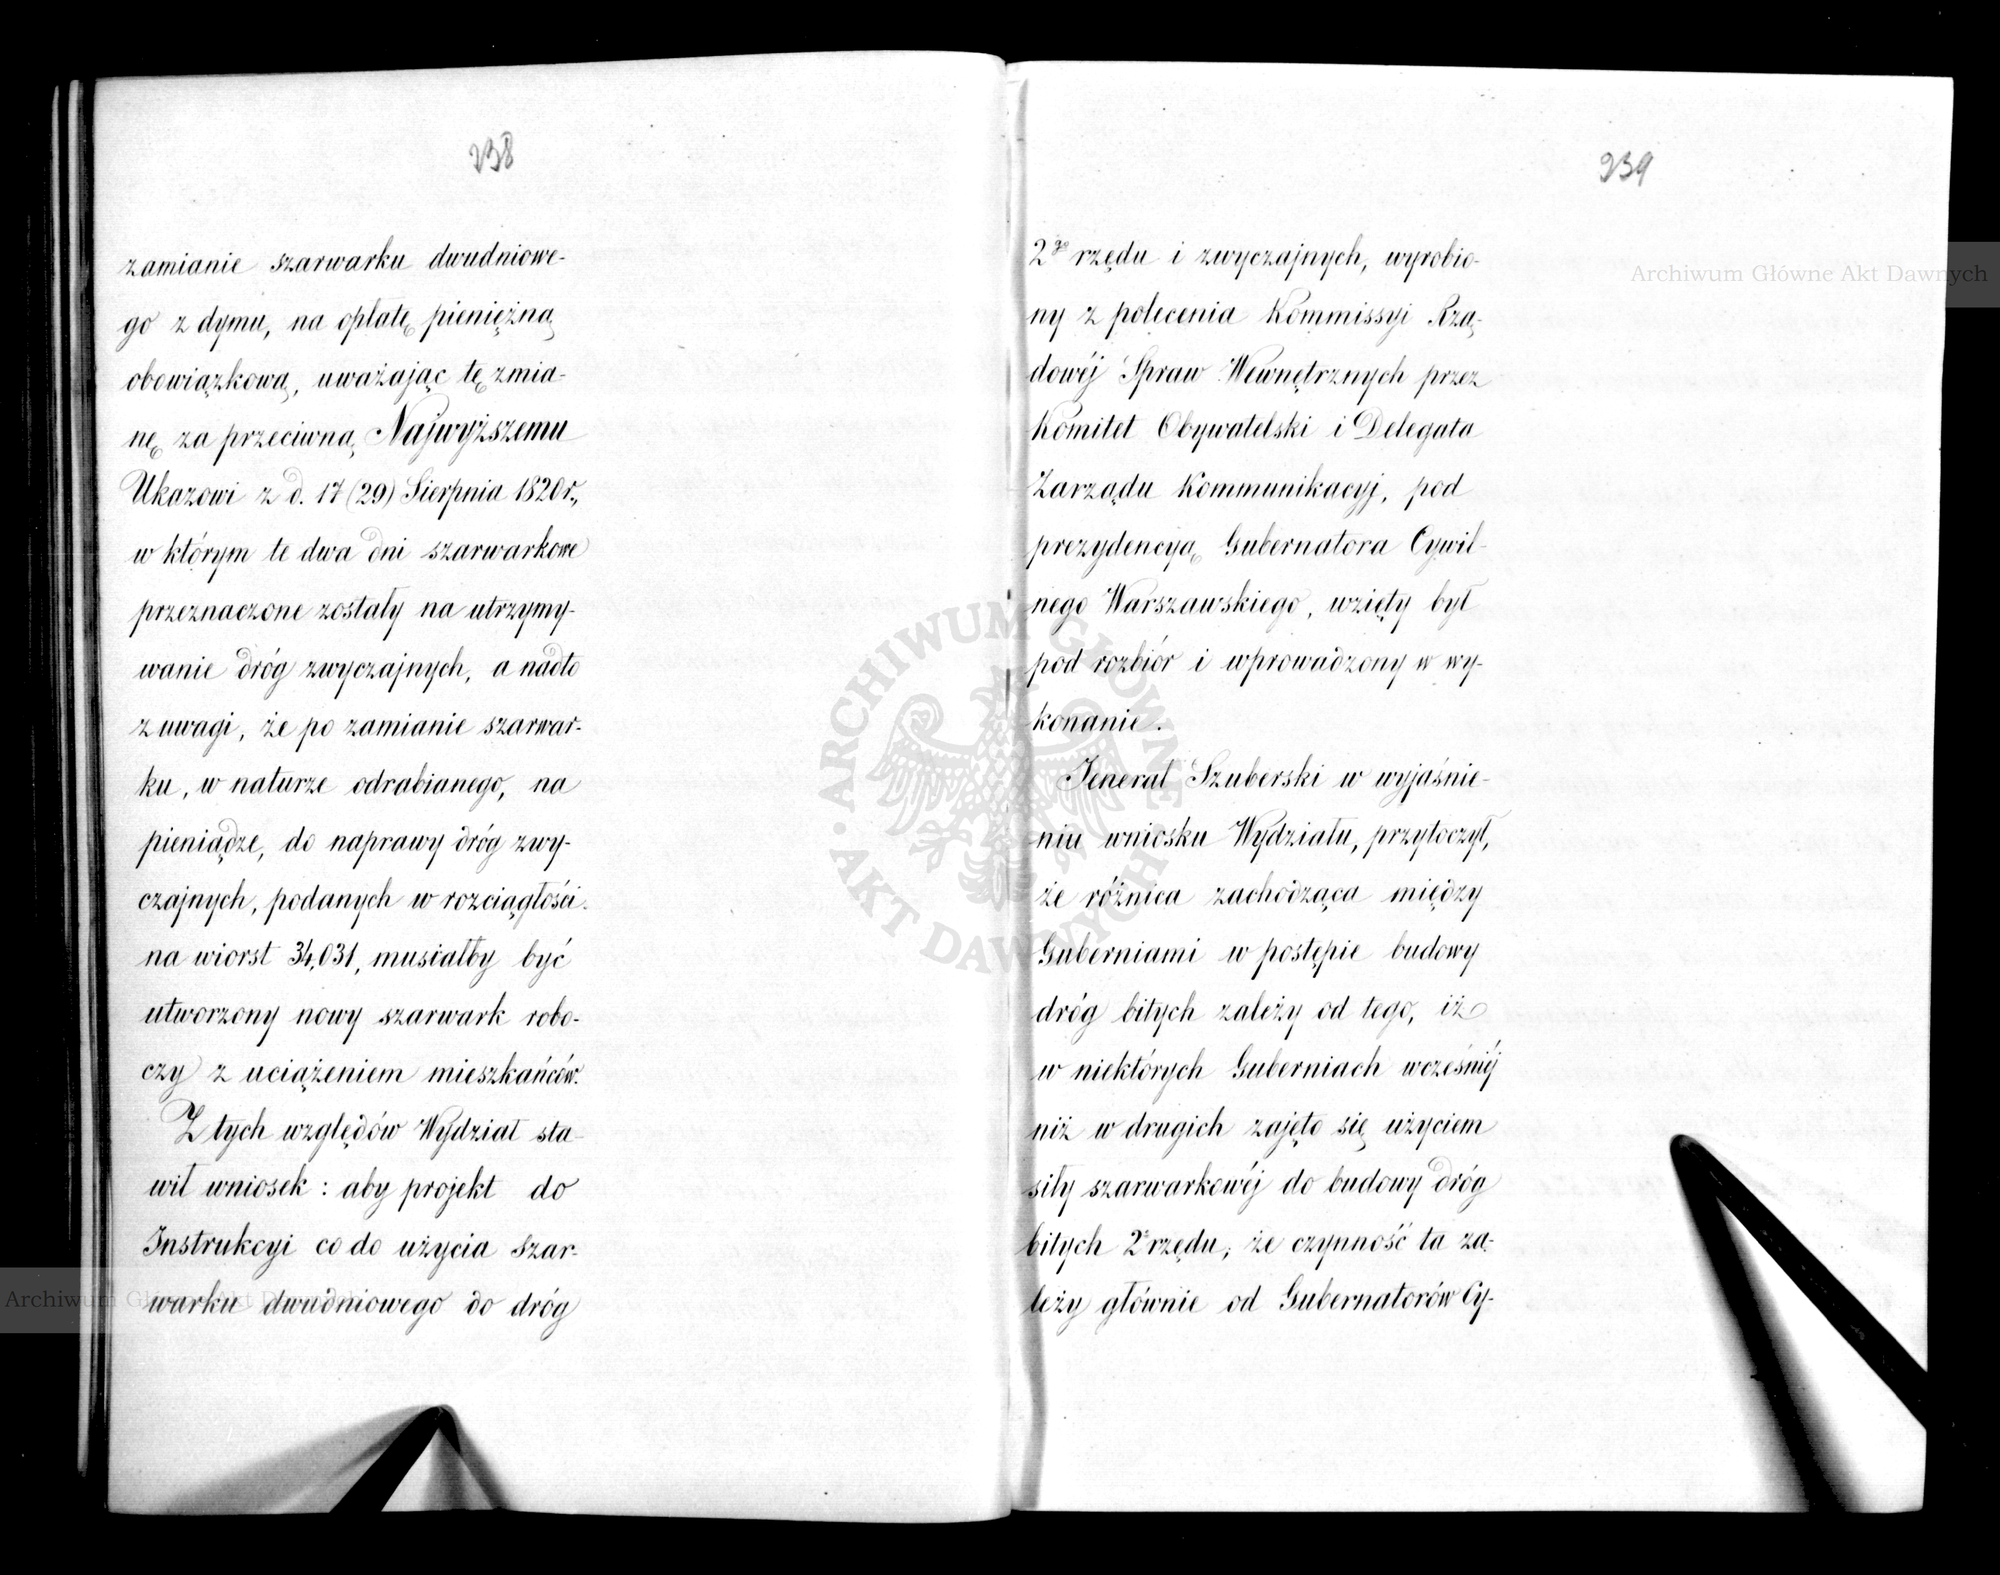 238
zamianie szarwarku dwudniowe-
go z dymu, na opłatę pieniężną
obowiązkową, uważając tę zmia-
nę za przeciwną Najwyższemu
Ukazowi z d. 17 (29) Sierpnia 1820 r.,
w którym te dwa dni szarwarkowe
przeznaczone zostały na utrzymy-
wanie dróg zwyczajnych, a nadto
z uwagi, że po zamianie szarwar-
ku, w naturze odrabianego, na
pieniądze, do naprawy dróg zwy-
czajnych, podanych w rozciągłości
na wiorst 34,031, musiałby być
utworzony nowy szarwark robo-
czy z uciążeniem mieszkańców.
Z tych względów Wydział sta-
wił wniosek: aby projekt do
Instrukcyi co do użycia szar-
warku dwudniowego do dróg
239
2go rzędu i zwyczajnych, wyrobio-
ny z polecenia Kommissyi Rzą-
dowéj Spraw Wewnętrznych przez
Komitet Obywatelski i Delegata
Zarządu Kommunikacyj, pod
prezydencyą Gubernatora Cywil-
nego Warszawskiego, wzięty był
pod rozbiór i wprowadzony w wy-
konanie.
Jenerał Szuberski w wyjaśnie-
niu wniosku Wydziału, przytoczył,
że różnica zachodząca między
Guberniami w postępie budowy
dróg bitych zależy od tego, iż
w niektórych Guberniach wcześniéj
niż w drugich zajęto się użyciem
siły szarwarkowéj do budowy dróg
bitych 2o rzędu; że czynność ta za-
leży głównie od Gubernatorów Cy-
Archiwum Główne Akt Dawnych
ARCHIWUM GŁÓWNE AKT DAWNYCH
Archiwum Główne Akt Dawnych